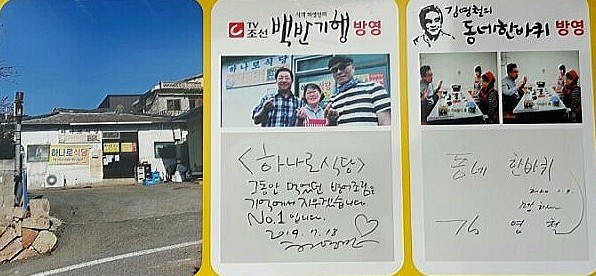 하나로식당
식객 허영만의
TV조선
백반기행 방영
하나로식당
식당
<하나로식당>
그동안 먹었던 병어조림을
기억에서 지우겠습니다.
No.1 입니다.
2019. 7. 18
김영철의
동네한바퀴 방영
동네 한바퀴
김영철